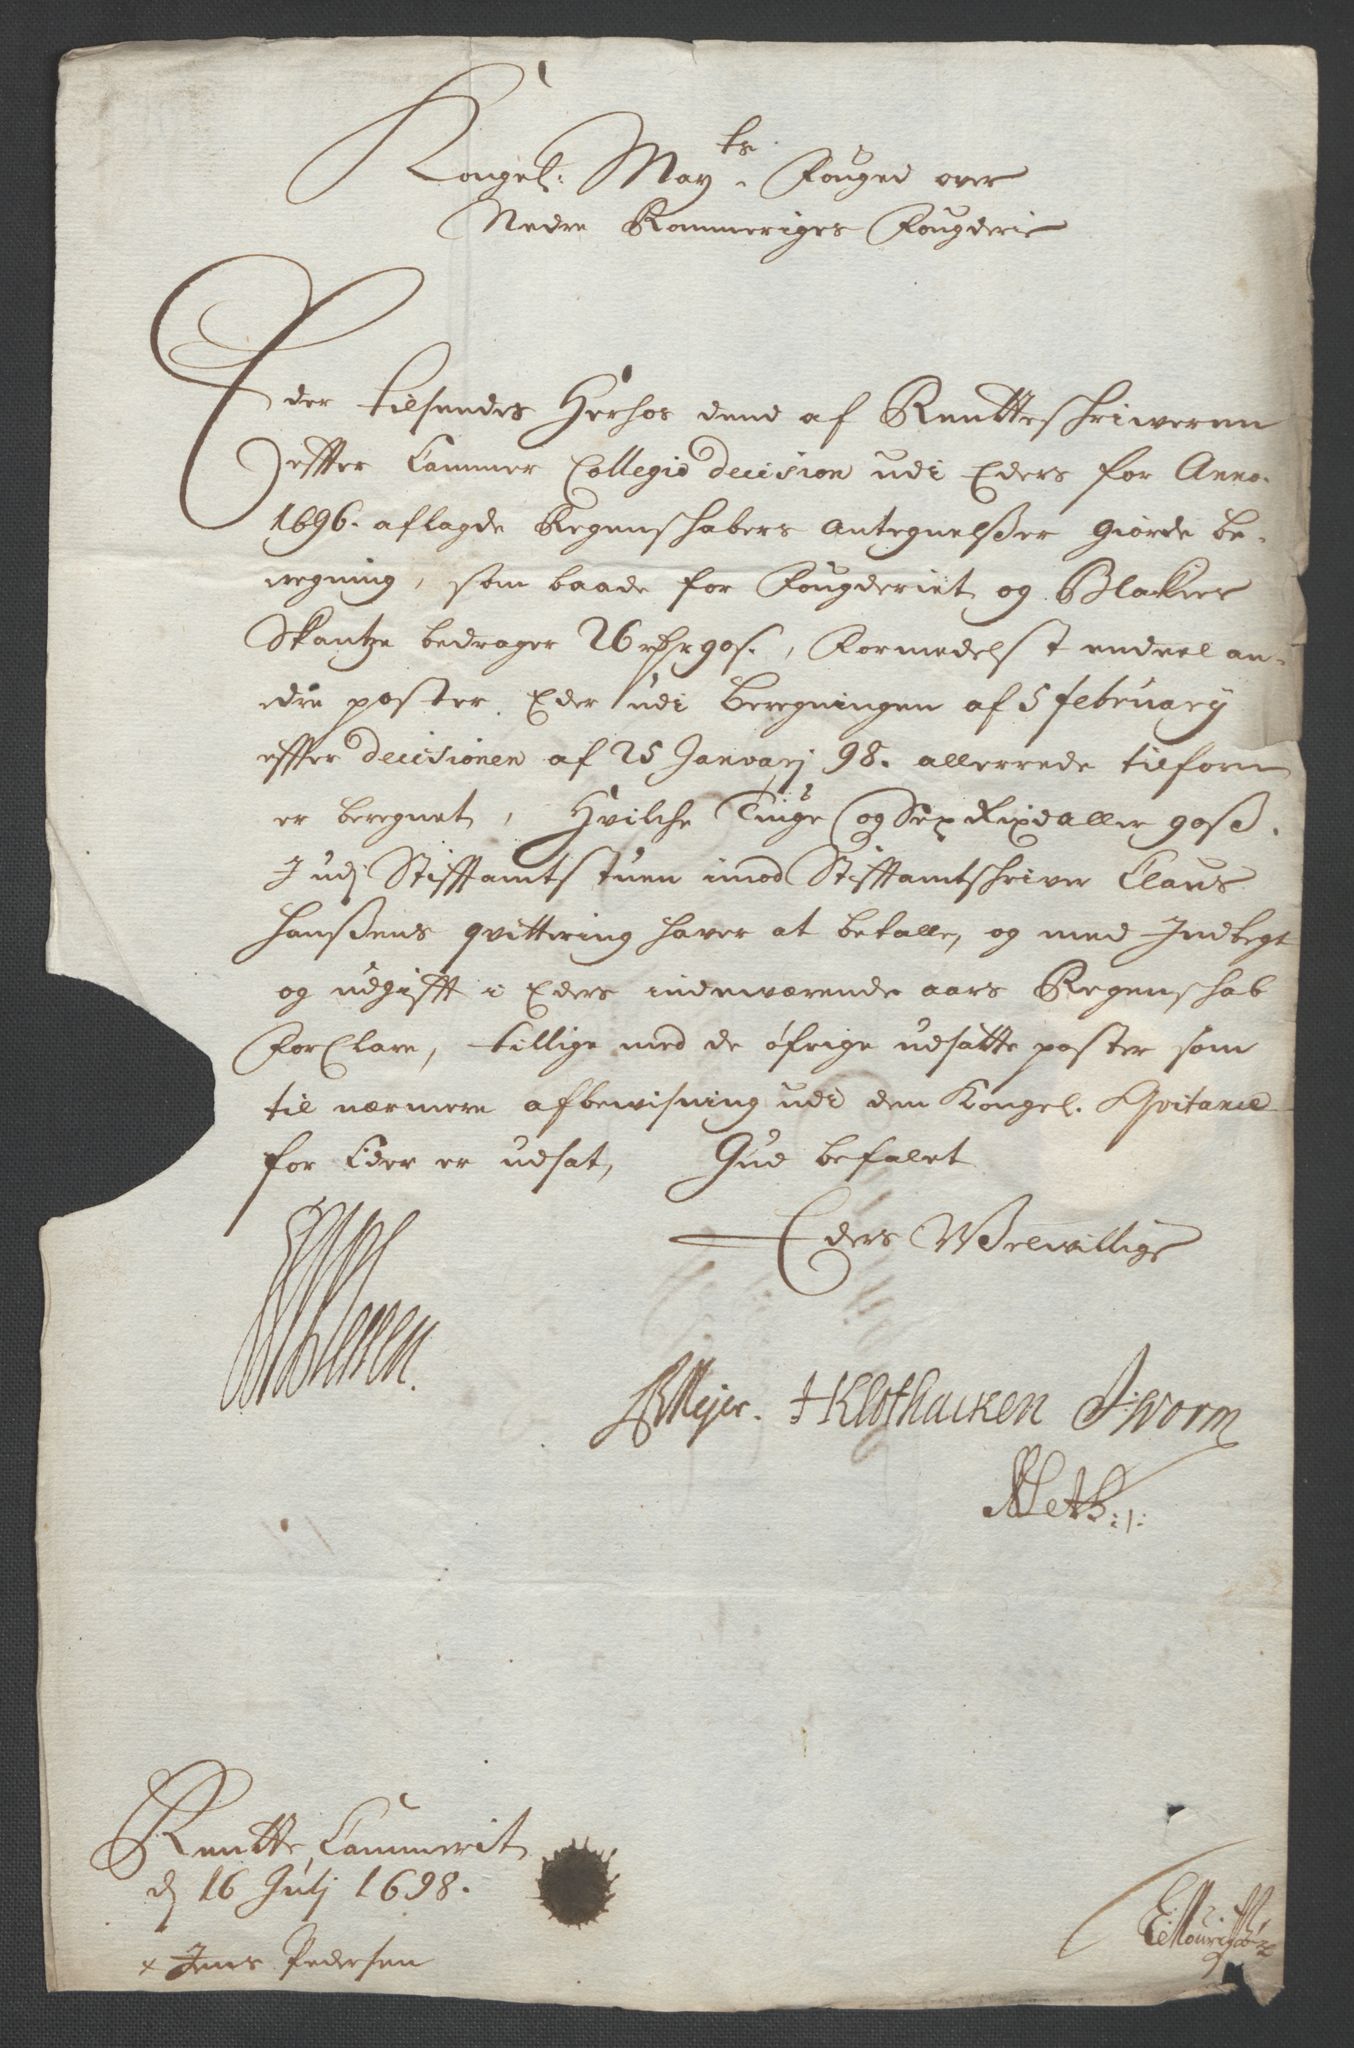 Kongel: May.ts Fouged over
Nedre Rommeriges Fougderie
Eder tilsendes Herhos dend af Rentteschriweren
effter Cammer Collegio decision udi Eders for Anno.
1696. aflagde Regenschabers Antegnelßer giorde be-
regning, som baade for Fougderiet og Blakier
Skantze bedrager 26 rdr 90s., Formedelst endeel an-
dre poster Eder udi beregningen af 5 february
effter decisionen af 25 Januarj 98. allerrede tilforn
er beregnet, Hvilche Tiuge og Sex Rixdaller 90ß.
I udj Stifftamtstuen imod Stifftamtschriver Claus
Hanßens qvittering haver at betalle, og med Indtegt
og udgifft i Eders indeværende aars Regenschab
ForClare, tillige med de öfrige udsatte poster som
til nærmere afbewisning udi den Kongel. Qvitance
for Eder er udsat, Gud befalet
Eders Welwillige
Meyer. Klothacken Worm
Rentte Cammerit
d 16 Julj 1698.
Jens Pedersen